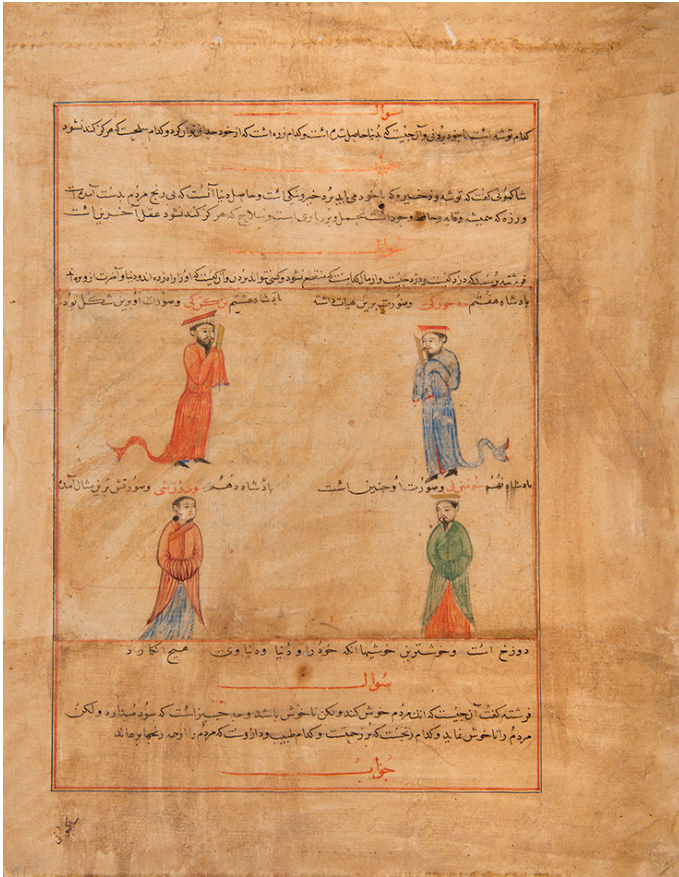 سوال
کدام توشه است با خود بردنی و آن چیست که بدنیا حاصل شده است و کدام زره است که از خود جدا نتوان کرد و کدام سلاحست که هرگز کند نشود
شاکمونی گفت که توشه و ذخیره که با خود می باید برد خیر و نیکی است و حاصل دنیا آنست که بی رنج مردم بدست آمده است
و زره که همیشه وقایه و حافظ وجود است تحمل و بردباری است و سلاح که هرگز کند نشود عقل آخرین است
سوال
فرشته پرسید که دزد کیست و دزد چیست و از مال کدامست که منقطع نشود و کسی نتواند بردن و آن کیست که او را راه زده اند و دنیا و آخرت از و برده اند
پادشاه هفتم و صورت برین هیأت داشته
پادشاه هشتم و صورت او برین شکل بود
پادشاه نهم و صورت او چنین است
پادشاه دهم و صورتش برین مثال آمده
دوزخ است و خوشترین خوشیها آنکه خود را و دنیا و دنیاوی هیچ انگارد
سوال
فرشته گفت آن چیست که اند مردم خوش کند و لیکن ناخوش باشد و چه چیز است که سود میدارد و لیکن
مردم را ناخوش نماید و کدام رنجست که بتر چیست و کدام طبیب و داروست که مردم را از جمله رنجها برهاند
جواب